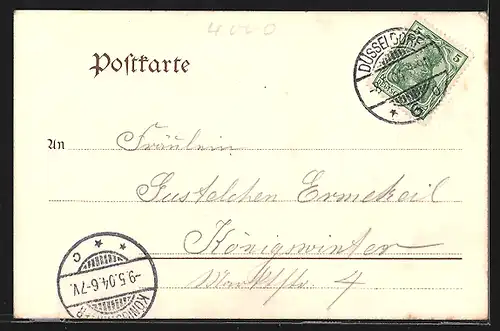 4000
Postkarte
DÜSSELDORF
5 5
An Fräulein
Gustelchen Ermekeil
Königswinter
Marktstr. 4
C
-9.5.04.6-7V.